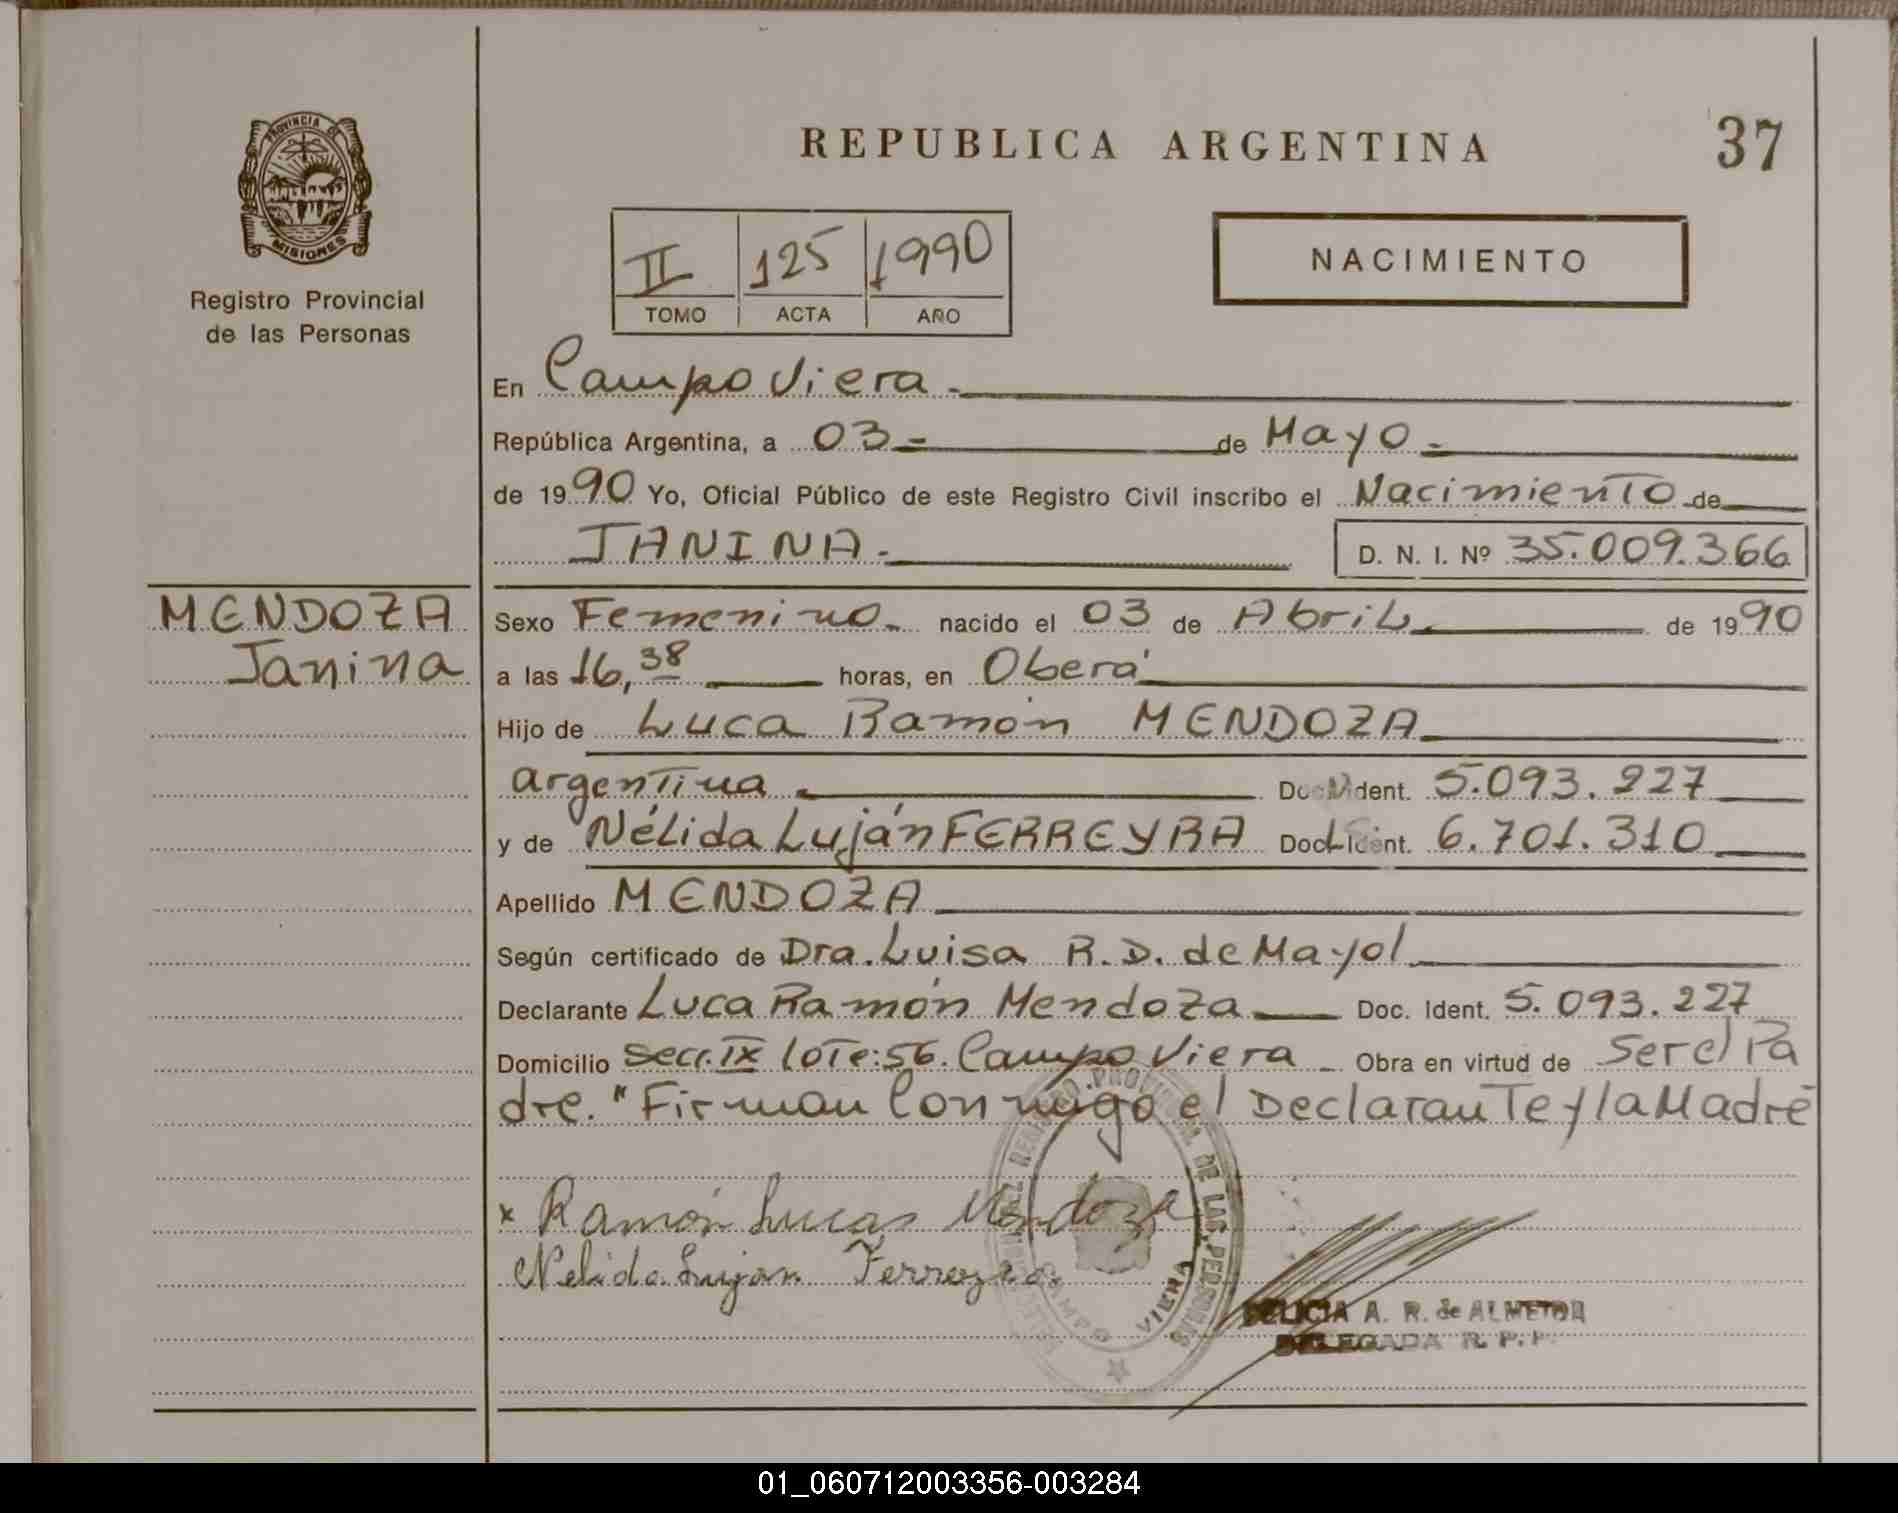 PROVINCIA DE
MISIONES
Registro Provincial
de las Personas
REPUBLICA ARGENTINA
37
II 125 1990
TOMO ACTA AÑO
NACIMIENTO
En Campo Viera.-
República Argentina, a 03.- de Mayo.-
de 1990 Yo, Oficial Público de este Registro Civil inscribo el Nacimiento de
JANINA.- D. N. I. Nº 35.009.366
MENDOZA
Janina
Sexo Femenino.- nacido el 03 de Abril de 1990
a las 16,38 horas, en Oberá
Hijo de Luca Ramón MENDOZA
argentina Doc. Ident. 5.093.227
y de Nélida Luján FERREYRA Doc. Ident. 6.701.310
Apellido MENDOZA
Según certificado de Dra. Luisa R. D. de Mayol
Declarante Luca Ramón Mendoza Doc. Ident. 5.093.227
Domicilio Secc. IX lote: 56. Campo Viera Obra en virtud de Ser el Pa
dre. "Firman Conmigo el Declarante y la Madre
x Ramón Lucas Mendoza
Nelida Lujan Ferreyra
REGISTRO PROVINCIAL DE LAS PERSONAS
CAMPO VIERA
DELICIA A. R. de ALMEIDA
DELEGADA R. P. P.
01_060712003356-003284